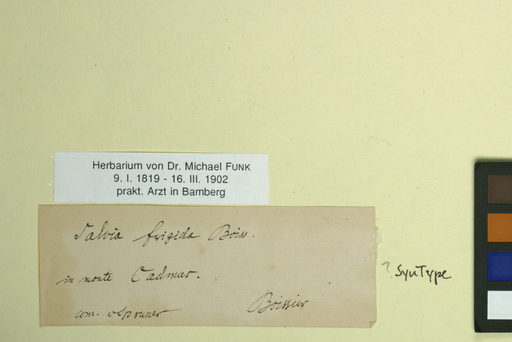 Herbarium von Dr. Michael FUNK
9. I. 1819 - 16. III. 1902
prakt. Arzt in Bamberg
Salvia frigida Boiss.
in monte Cadmus.
com. Boissier
? SynType